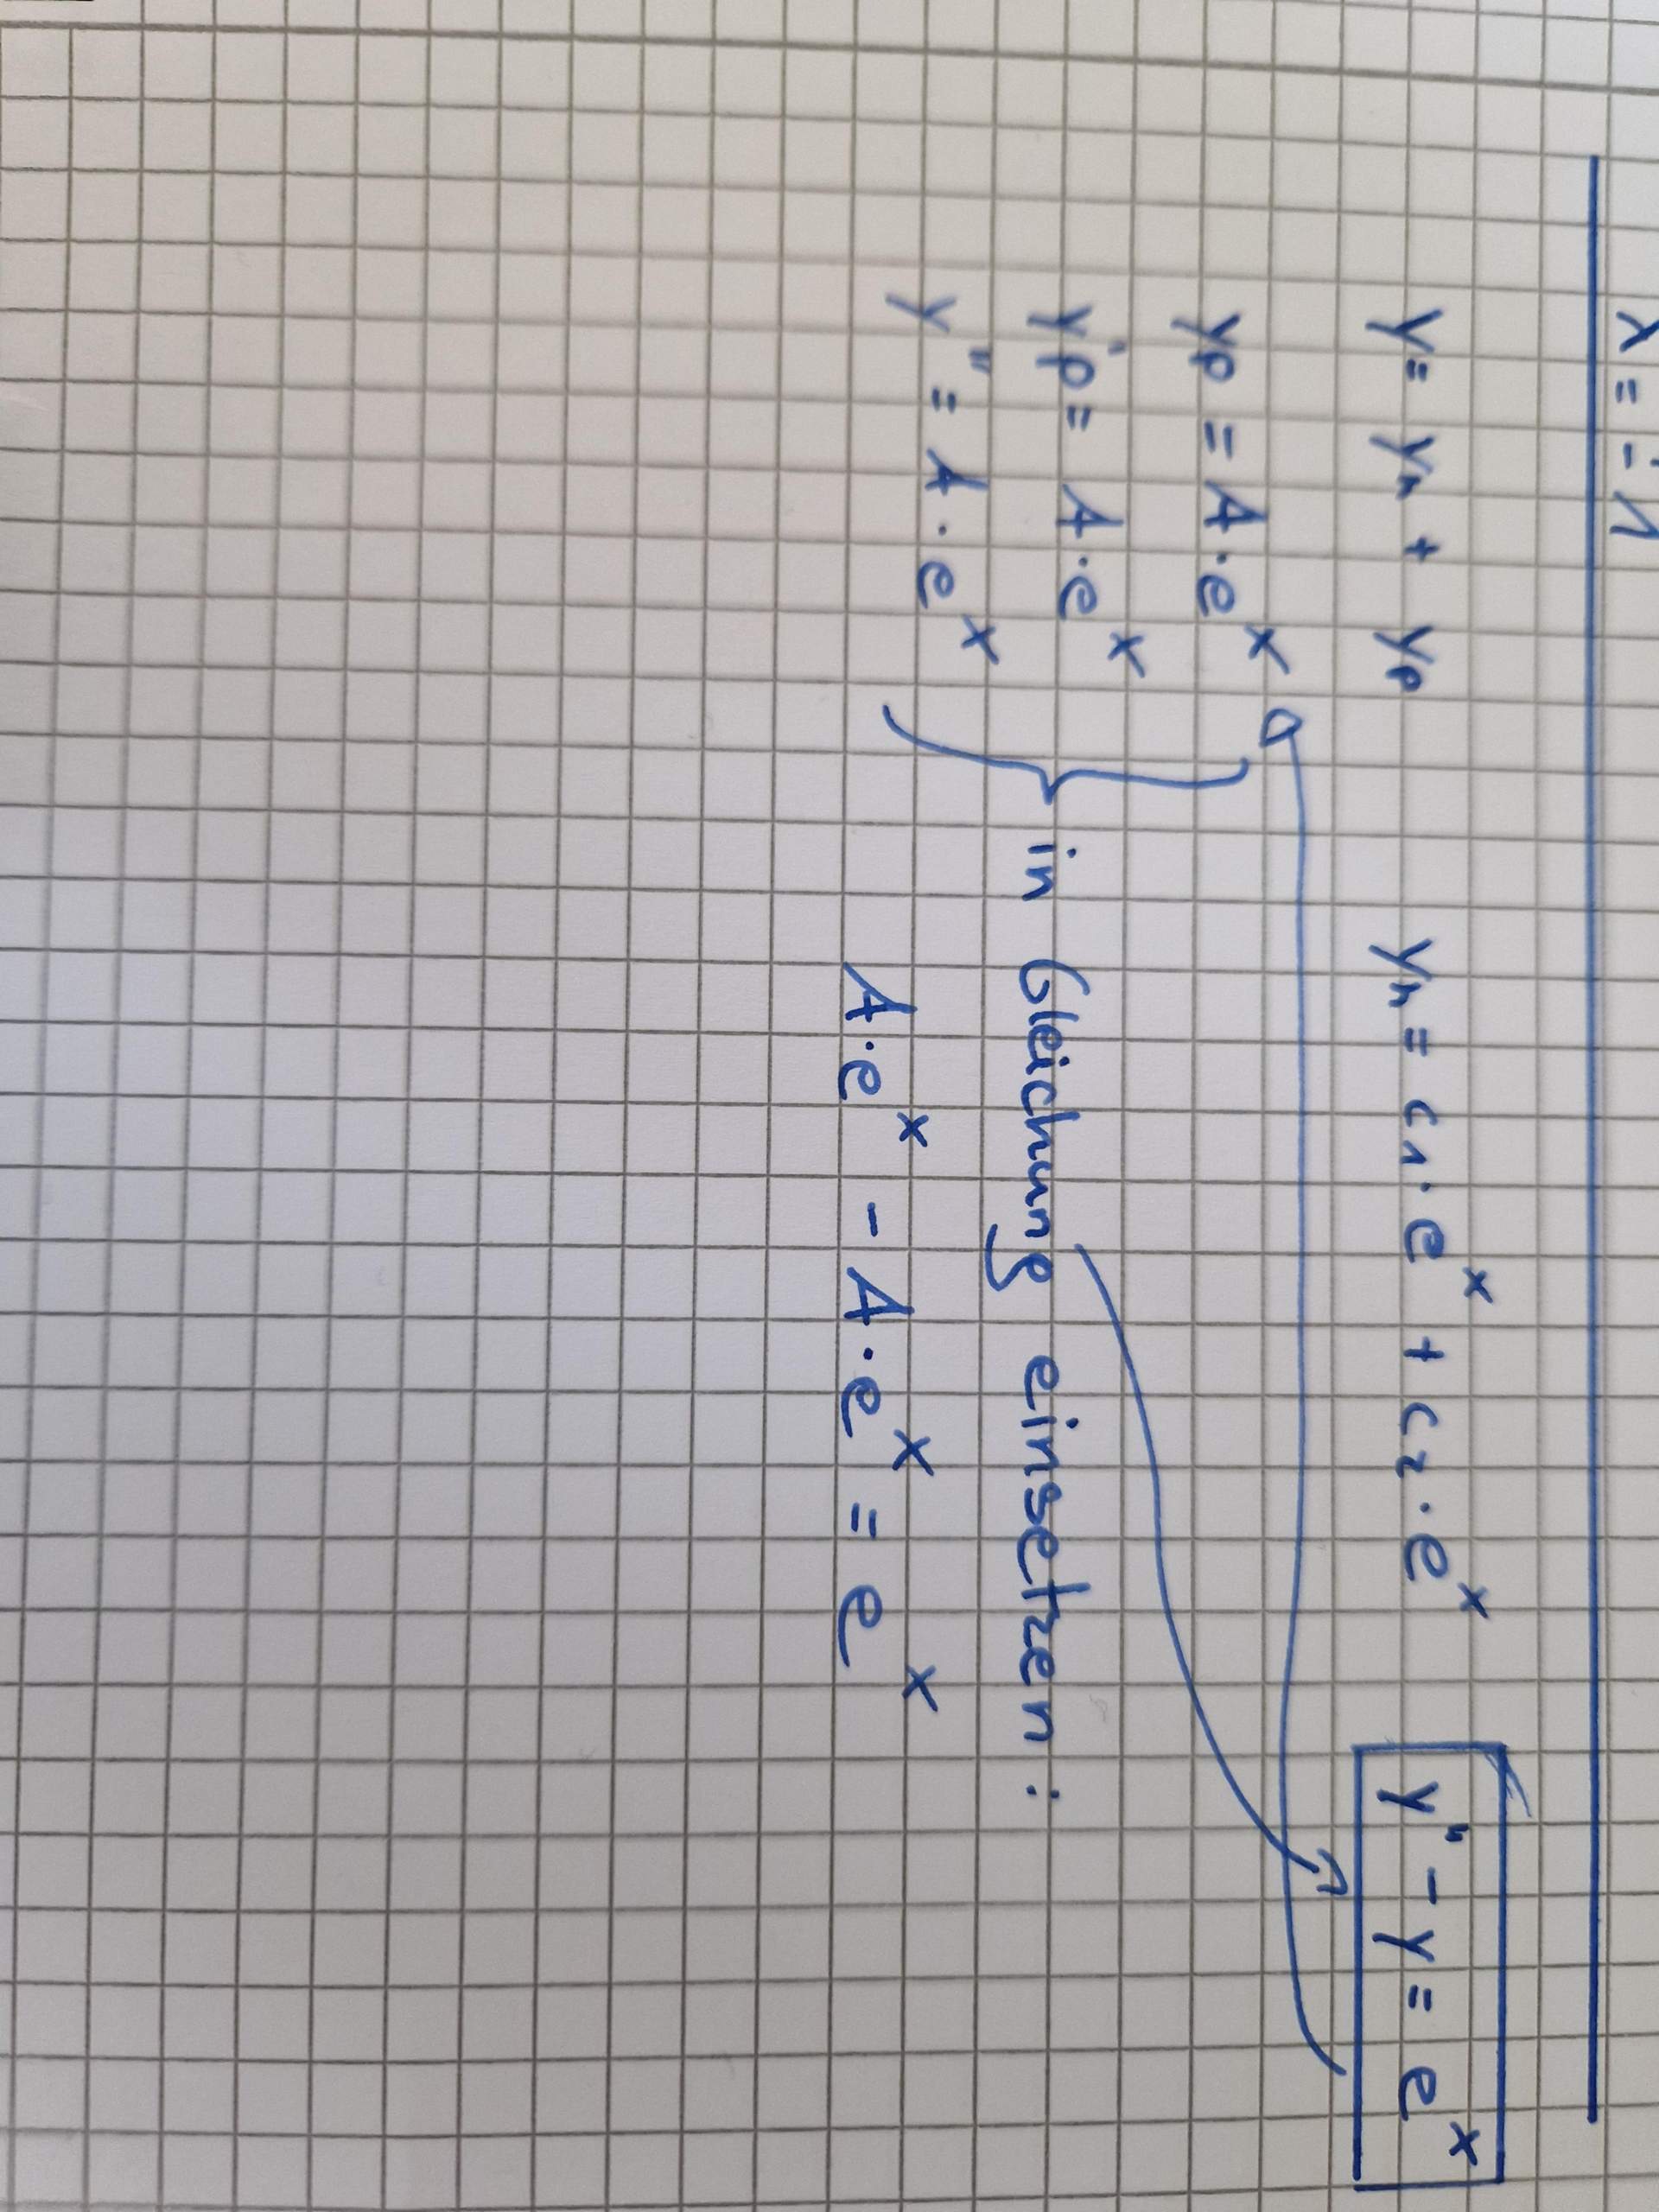 λ = ± 1
y = yh + yp    yh = c1 · e^x + c2 · e^x    y'' - y = e^x
yp = A · e^x
y'p = A · e^x
y'' = A · e^x
in Gleichung einsetzen :
A · e^x - A · e^x = e^x